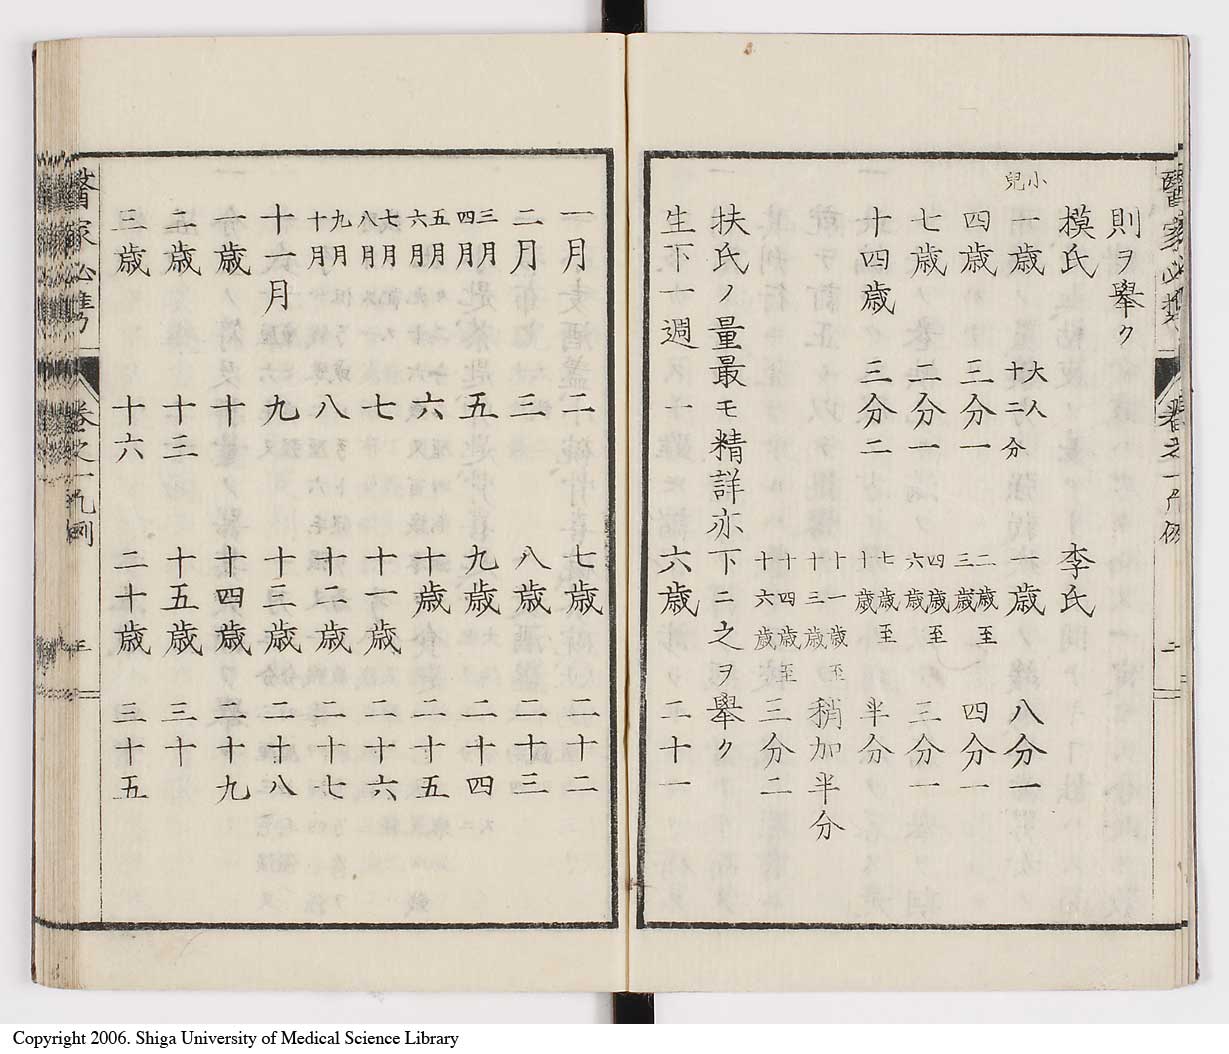 則ヲ擧ク
模氏 李氏
小兒
一歳 大人十二分 一歳 八分一
四歳 三分一 二歳至三歳 四分一
七歳 二分一 四歳至六歳 三分一
十四歳 三分二 七歳至十歳 半分
十一歳至十三歳 稍加半分
十四歳至十六歳 三分二
扶氏ノ量最モ精詳亦下ニ之ヲ擧ク
生下一週 一 六歳 二十一
一月 二 七歳 二十二
二月 三 八歳 二十三
三月四月 五 九歳 二十四
五月六月 六 十歳 二十五
七月八月 七 十一歳 二十六
九月十月 八 十二歳 二十七
十一月 九 十三歳 二十八
一歳 十 十四歳 二十九
二歳 十三 十五歳 三十
三歳 十六 二十歳 三十五
醫家必携 卷之一凡例 三
Copyright 2006. Shiga University of Medical Science Library